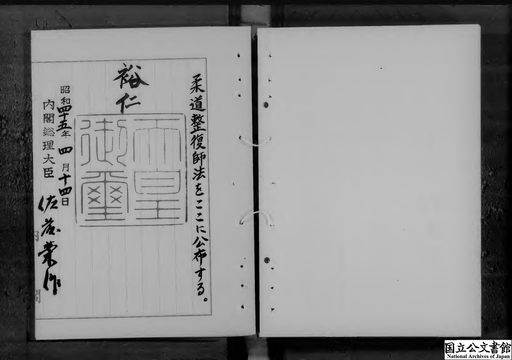 柔道整復師法をここに公布する。
裕仁
天皇御璽
昭和四十五年四月十四日
内閣総理大臣 佐藤榮作
国立公文書館
National Archives of Japan